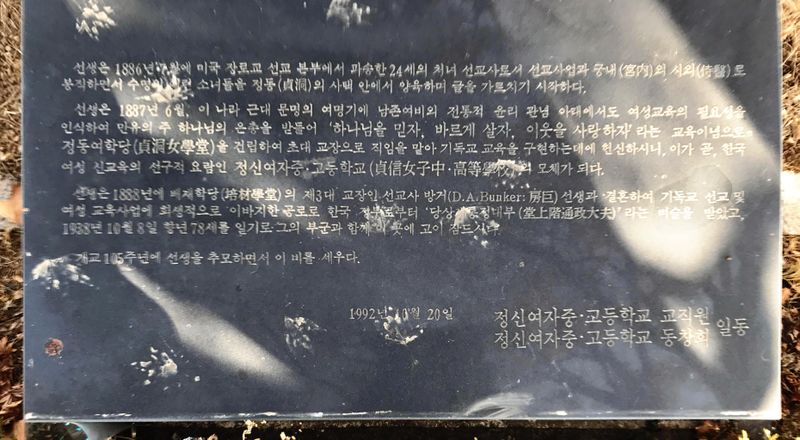 선생은 1886년 7월에 미국 장로교 선교 본부에서 파송한 24세의 처녀 선교사로서 선교사업과 궁내(宮內)의 시의(侍醫)로
봉직하면서 수명의 소녀들을 정동(貞洞)의 사택 안에서 양육하며 글을 가르치기 시작하다.
선생은 1887년 6월, 이 나라 근대 문명의 여명기에 남존여비의 전통적 윤리 관념 아래에서도 여성교육의 필요성을
인식하여 만유의 주 하나님의 은총을 받들어 '하나님을 믿자, 바르게 살자, 이웃을 사랑하자'라는 교육이념으로
정동여학당(貞洞女學堂)을 건립하여 초대 교장으로 직임을 맡아 기독교 교육을 구현하는데에 헌신하시니, 이가 곧, 한국
여성 신교육의 선구적 요람인 정신여자중·고등학교(貞信女子中·高等學校)의 모체가 되다.
선생은 1888년에 배재학당(培材學堂)의 제3대 교장인 선교사 방거(D.A.Bunker: 房巨) 선생과 결혼하여 기독교 선교 및
여성 교육사업에 희생적으로 이바지한 공로로 한국 정부로부터 '당상계통정대부(堂上階通政大夫)'라는 벼슬을 받았고,
1938년 10월 8일 향년 78세를 일기로 그의 부군과 함께 이 곳에 고이 잠드시다.
개교 105주년에 선생을 추모하면서 이 비를 세우다.
1992년 10월 20일
정신여자중·고등학교 교직원
정신여자중·고등학교 동창회 일동